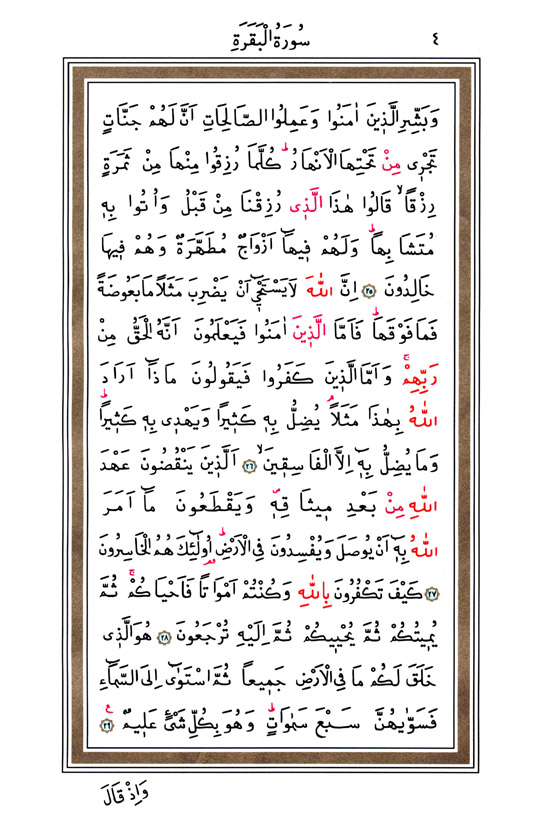 ٤ سُورَةُ الْبَقَرَةِ
وَبَشِّرِ الَّذ۪ينَ اٰمَنُوا وَعَمِلُوا الصَّالِحَاتِ اَنَّ لَهُمْ جَنَّاتٍ
تَجْر۪ي مِنْ تَحْتِهَا الْاَنْهَارُۜ كُلَّمَا رُزِقُوا مِنْهَا مِنْ ثَمَرَةٍ
رِزْقاًۙ قَالُوا هٰذَا الَّذ۪ي رُزِقْنَا مِنْ قَبْلُ وَاُتُوا بِه۪
مُتَشَابِهاًۜ وَلَهُمْ ف۪يهَٓا اَزْوَاجٌ مُطَهَّرَةٌ وَهُمْ ف۪يهَا
خَالِدُونَ ﴿٢٥﴾ اِنَّ اللّٰهَ لَا يَسْتَحْي۪ٓ اَنْ يَضْرِبَ مَثَلاً مَا بَعُوضَةً
فَمَا فَوْقَهَاۜ فَاَمَّا الَّذ۪ينَ اٰمَنُوا فَيَعْلَمُونَ اَنَّهُ الْحَقُّ مِنْ
رَبِّهِمْۚ وَاَمَّا الَّذ۪ينَ كَفَرُوا فَيَقُولُونَ مَاذَٓا اَرَادَ
اللّٰهُ بِهٰذَا مَثَلاًۢ يُضِلُّ بِه۪ كَث۪يراً وَيَهْد۪ي بِه۪ كَث۪يراًۜ
وَمَا يُضِلُّ بِه۪ٓ اِلَّا الْفَاسِق۪ينَۙ ﴿٢٦﴾ اَلَّذ۪ينَ يَنْقُضُونَ عَهْدَ
اللّٰهِ مِنْ بَعْدِ م۪يثَاقِه۪ۖ وَيَقْطَعُونَ مَٓا اَمَرَ
اللّٰهُ بِه۪ٓ اَنْ يُوصَلَ وَيُفْسِدُونَ فِي الْاَرْضِۜ اُو۬لٰٓئِكَ هُمُ الْخَاسِرُونَ
﴿٢٧﴾ كَيْفَ تَكْفُرُونَ بِاللّٰهِ وَكُنْتُمْ اَمْوَاتاً فَاَحْيَاكُمْۚ ثُمَّ
يُم۪يتُكُمْ ثُمَّ يُحْي۪يكُمْ ثُمَّ اِلَيْهِ تُرْجَعُونَ ﴿٢٨﴾ هُوَ الَّذ۪ي
خَلَقَ لَكُمْ مَا فِي الْاَرْضِ جَم۪يعاً ثُمَّ اسْتَوٰٓى اِلَى السَّمَٓاءِ
فَسَوّٰيهُنَّ سَبْعَ سَمٰوَاتٍۜ وَهُوَ بِكُلِّ شَيْءٍ عَل۪يمٌ۟ ﴿٢٩﴾ ع
وَاِذْ قَالَ